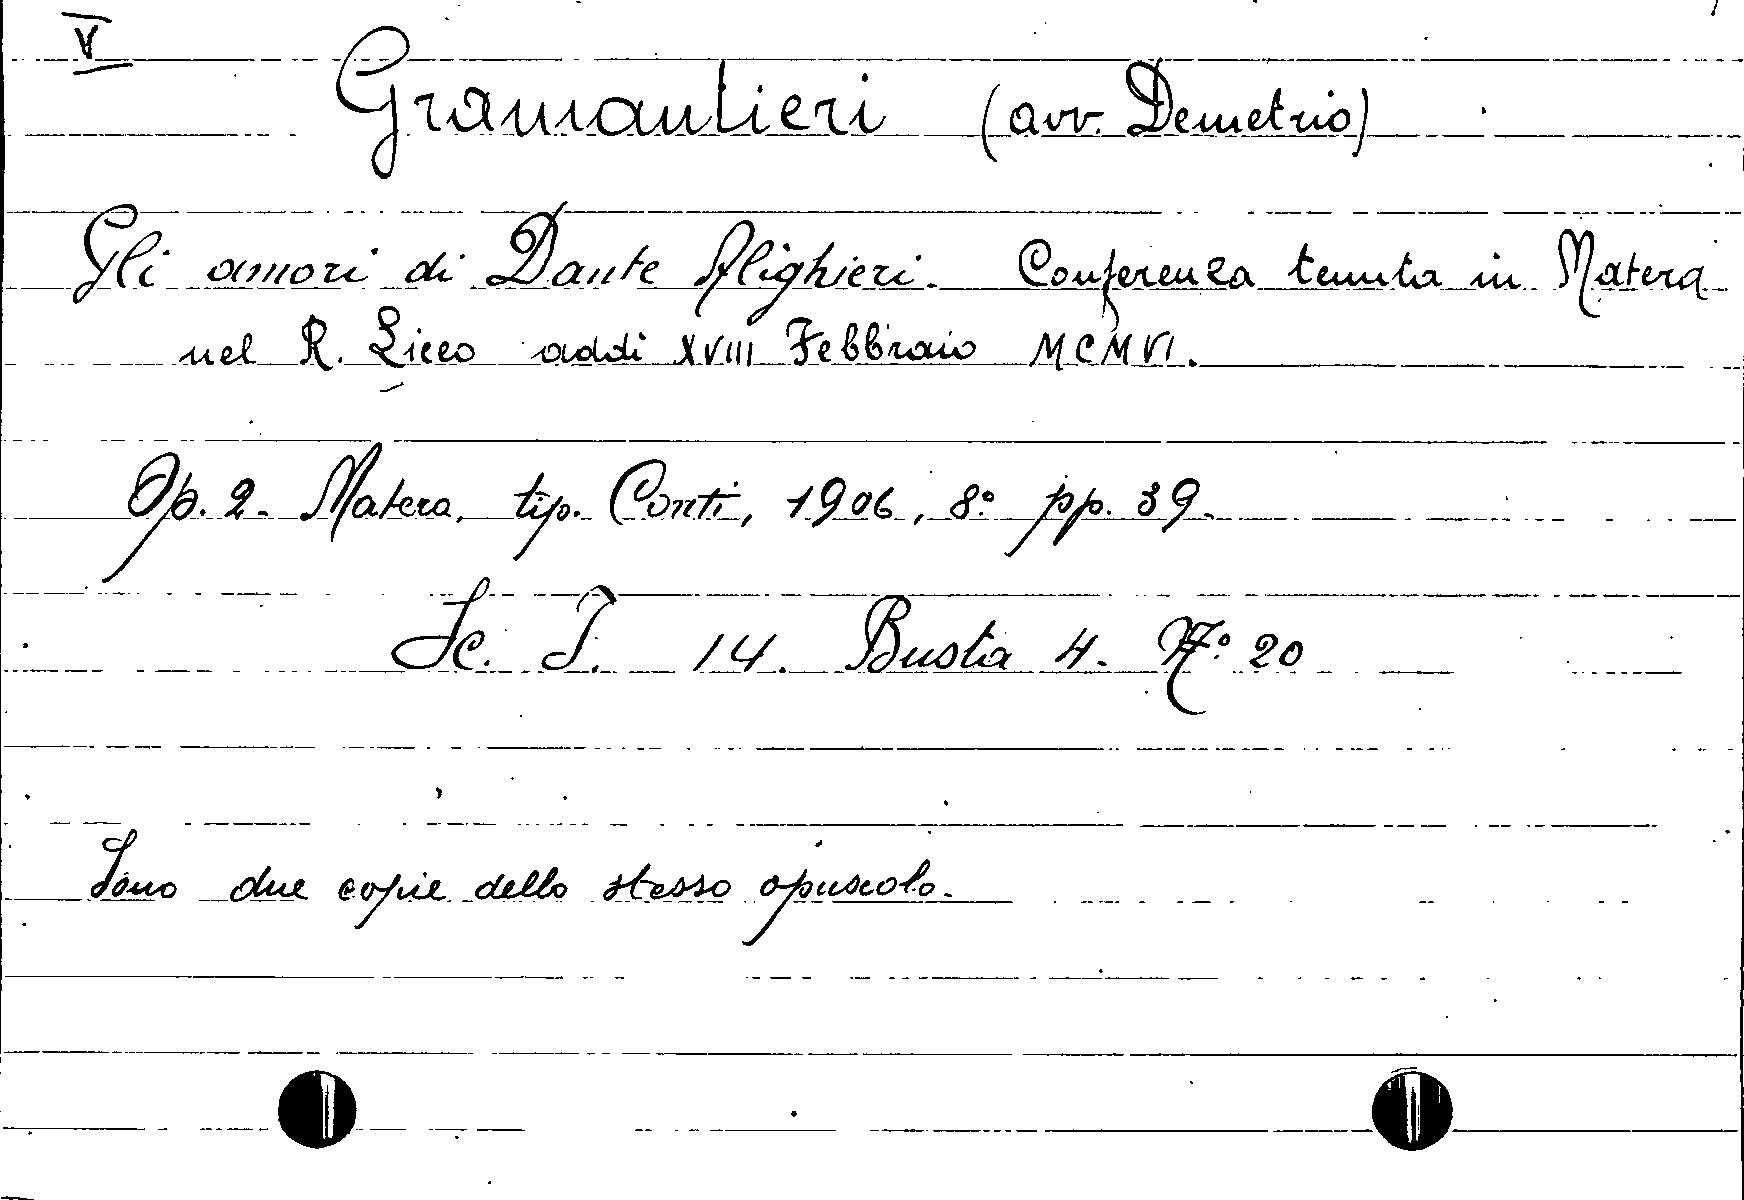 V
Gramantieri (avv. Demetrio)
Gli amori di Dante Alighieri. Conferenza tenuta in Matera
nel R. Liceo addì XVIII Febbraio MCMVI.
Op. 2. Matera, tip. Conti, 1906, 8º pp. 39.
Sc. I. 14. Busta 4. Nº 20
Sono due copie dello stesso opuscolo.